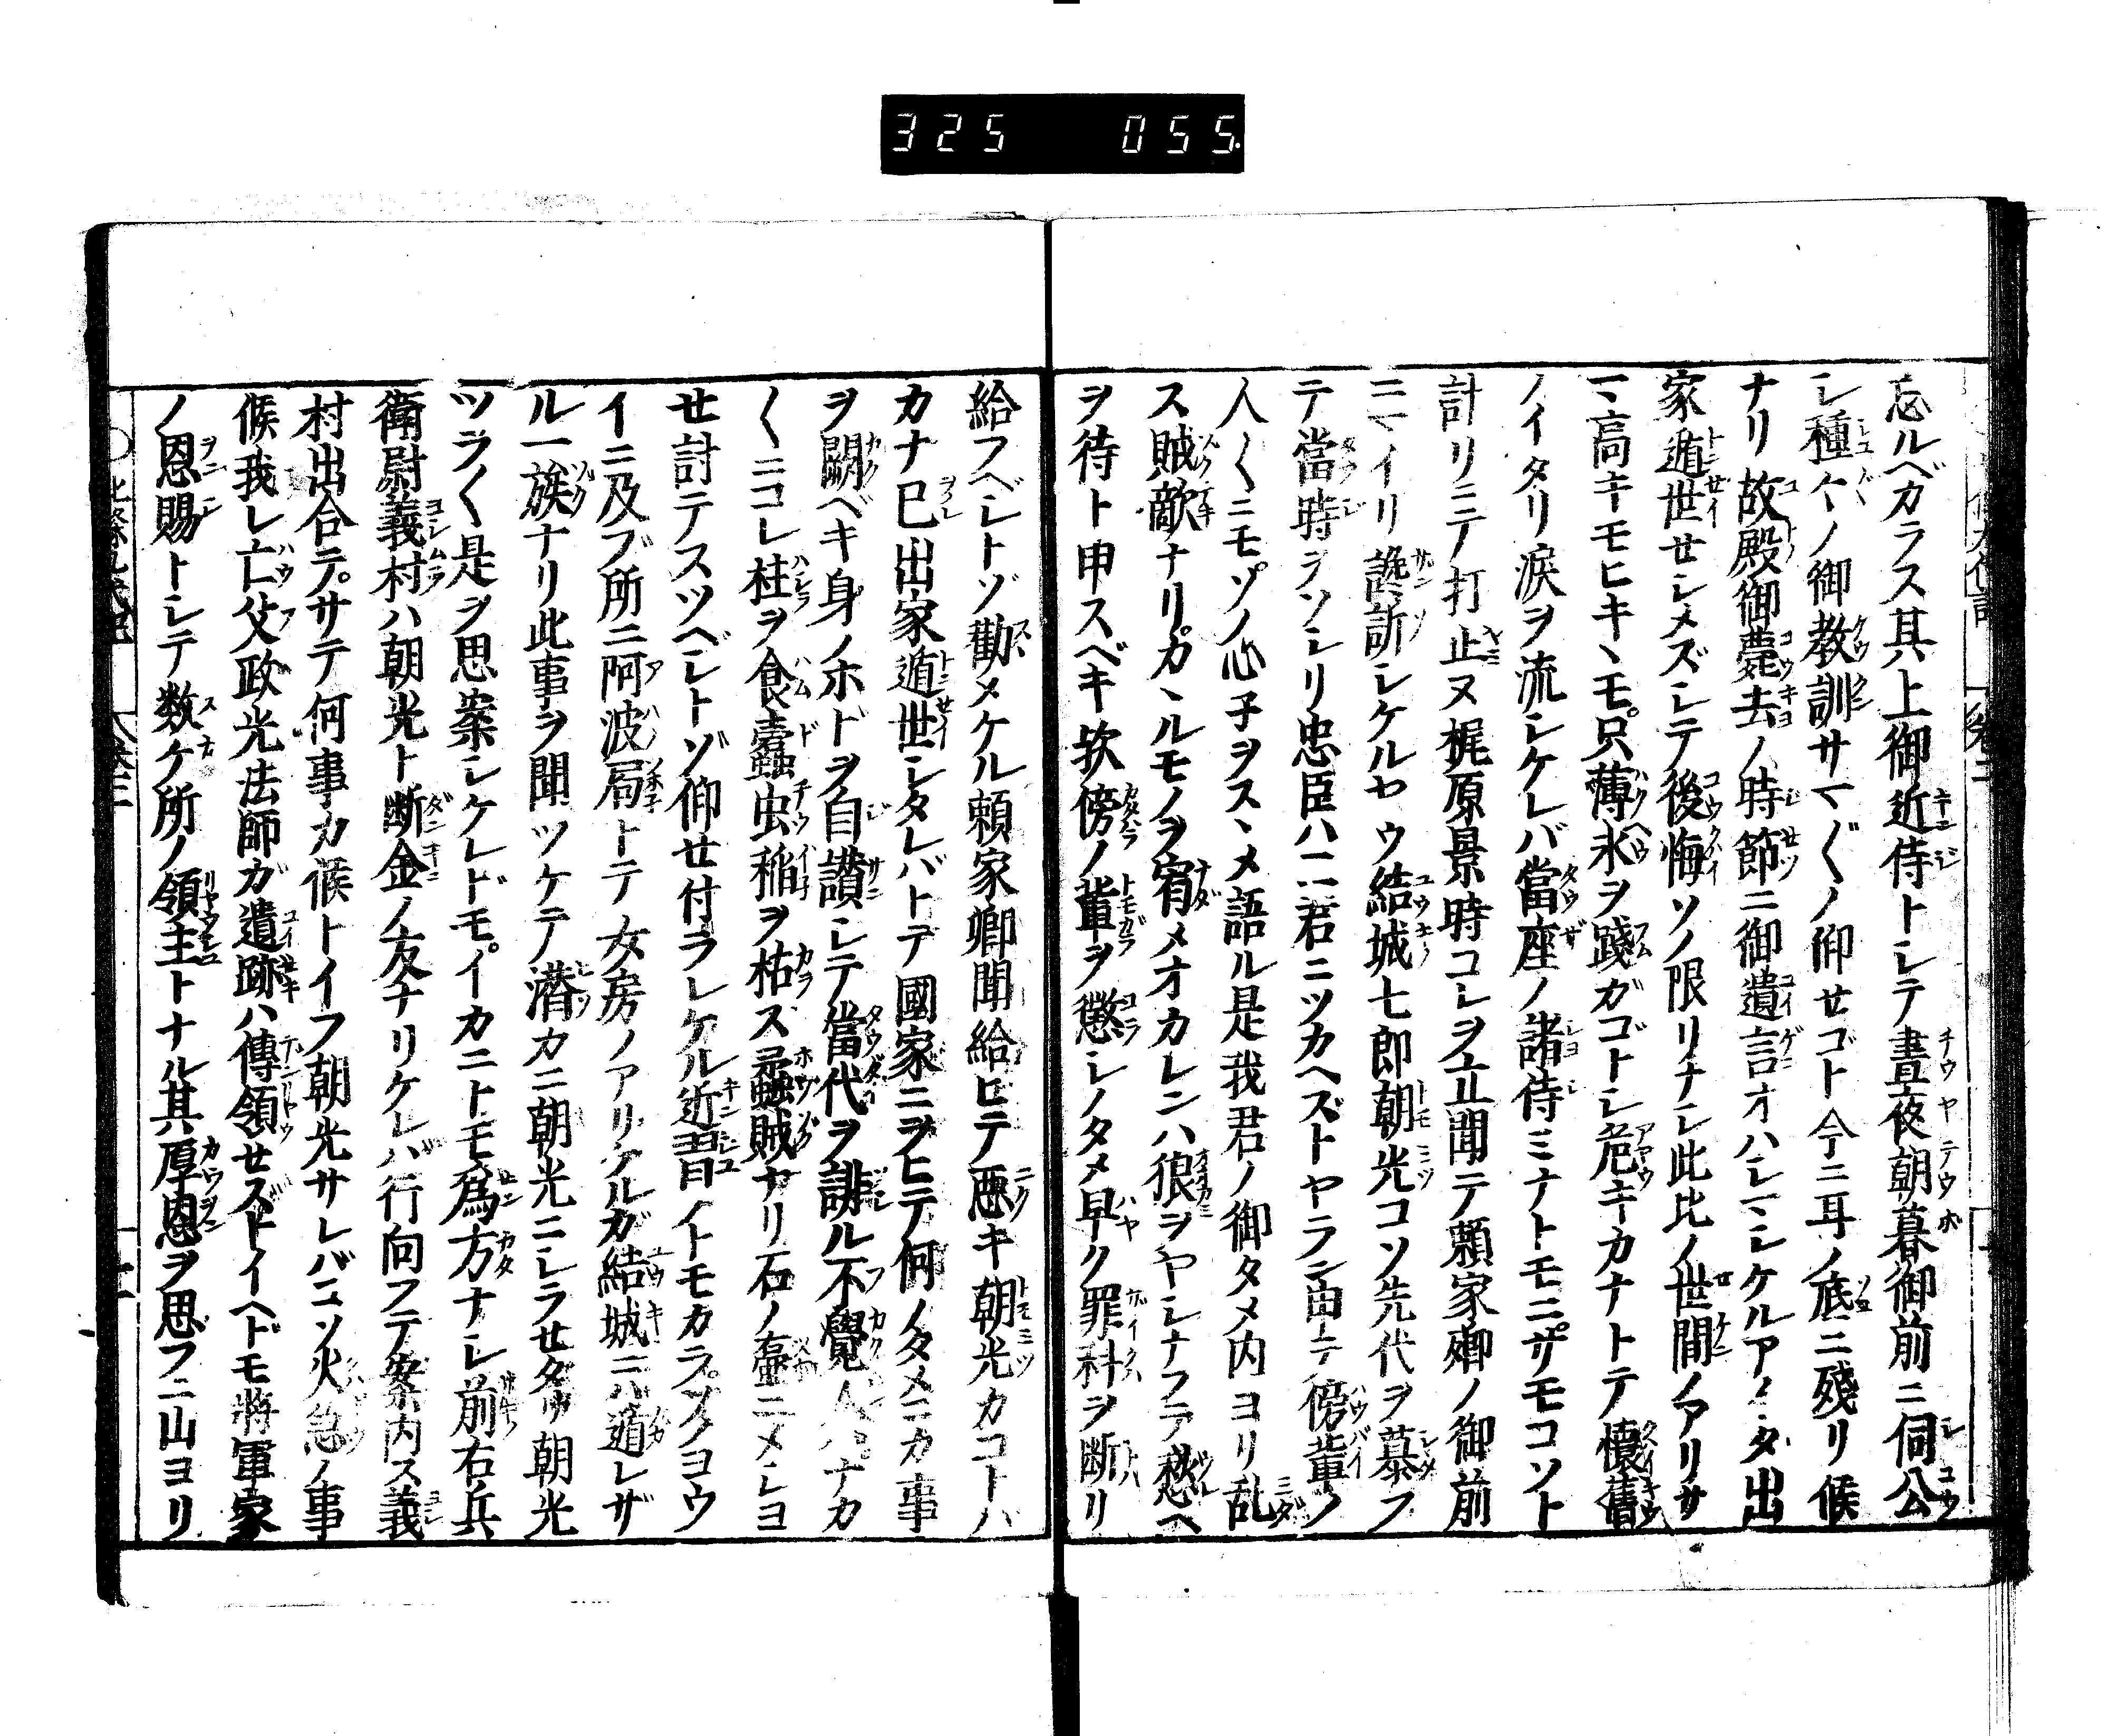 325 055
忘ルベカラス其上御近侍トシテ晝夜朝暮御前ニ伺公
シ種々ノ御教訓サマ〴〵ノ仰せゴト今ニ耳ノ底ニ殘リ候
ナリ故殿御薨去ノ時節ニ御遺言オハシマシケルアイダ出
家遁世せシメズシテ後悔ソノ限リナシ此比ノ世間ノアリサ
マ高キモヒキヽモ只薄氷ヲ踐ガゴトシ危キカナトテ懷舊
ノイタリ涙ヲ流シケレバ當座ノ諸侍ミナトモニザモコソト
計リニテ打止ヌ梶原景時コレヲ立聞テ頼家卿ノ御前
ニマイリ讒訴シケルヤウ結城七郎朝光コソ先代ヲ慕フ
テ當時ヲソシリ忠臣ハ二君ニツカヘズトヤラン申テ傍輩ノ
人〳〵ニモソノ心子ヲスヽメ語ル是我君ノ御タメ内ヨリ乱
ス賊敵ナリカヽルモノヲ宥メオカレンハ狼ヲヤシナフテ愁ヘ
ヲ待ト申スベキ欤傍ノ輩ヲ懲シノタメ早ク罪科ヲ断リ
給フベシトゾ勸メケル頼家卿聞給ヒテ悪キ朝光カコトハ
カナ已出家遁世シタレバトテ國家ニヲヒテ何ノタメニカ事
ヲ闕ベキ身ノホドヲ自讃シテ當代ヲ誹ル不覺人ナカ
〳〵ニコレ柱ヲ食蠹虫稲ヲ枯ス蟊賊ナリ石ノ壷ニメシヨ
せ討テスツベシトゾ仰せ付ラレケル近習イトモカラソノヨウ
イニ及ブ所ニ阿波局トテ女房ノアリケルガ結城ニハ遁レザ
ル一族ナリ此事ヲ聞ツケテ潜カニ朝光ニシラせタリ朝光
ツラ〳〵是ヲ思案シケレドモイカニトモ爲方ナシ前右兵
衛尉義村ハ朝光ト断金ノ友ナリケレバ行向フテ案内ス義
村出合テサテ何事カ候トイフ朝光サレバコソ火急ノ事
候我レ亡父政光法師ガ遺跡ハ傳領せズトイヘドモ將軍家
ノ恩賜トシテ数ケ所ノ領主トナル其厚恩ヲ思フニ山ヨリ